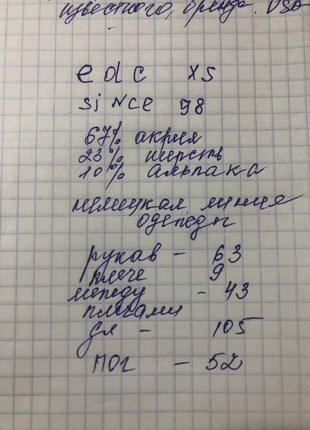 известного, бренда. USA
edc XS
SiNce 98
67% акрил
23% шерсть
10% альпака
немецкая линия
одежды
рукав - 63
плече 9
между - 43
плечами
дл - 105
ПОГ - 52